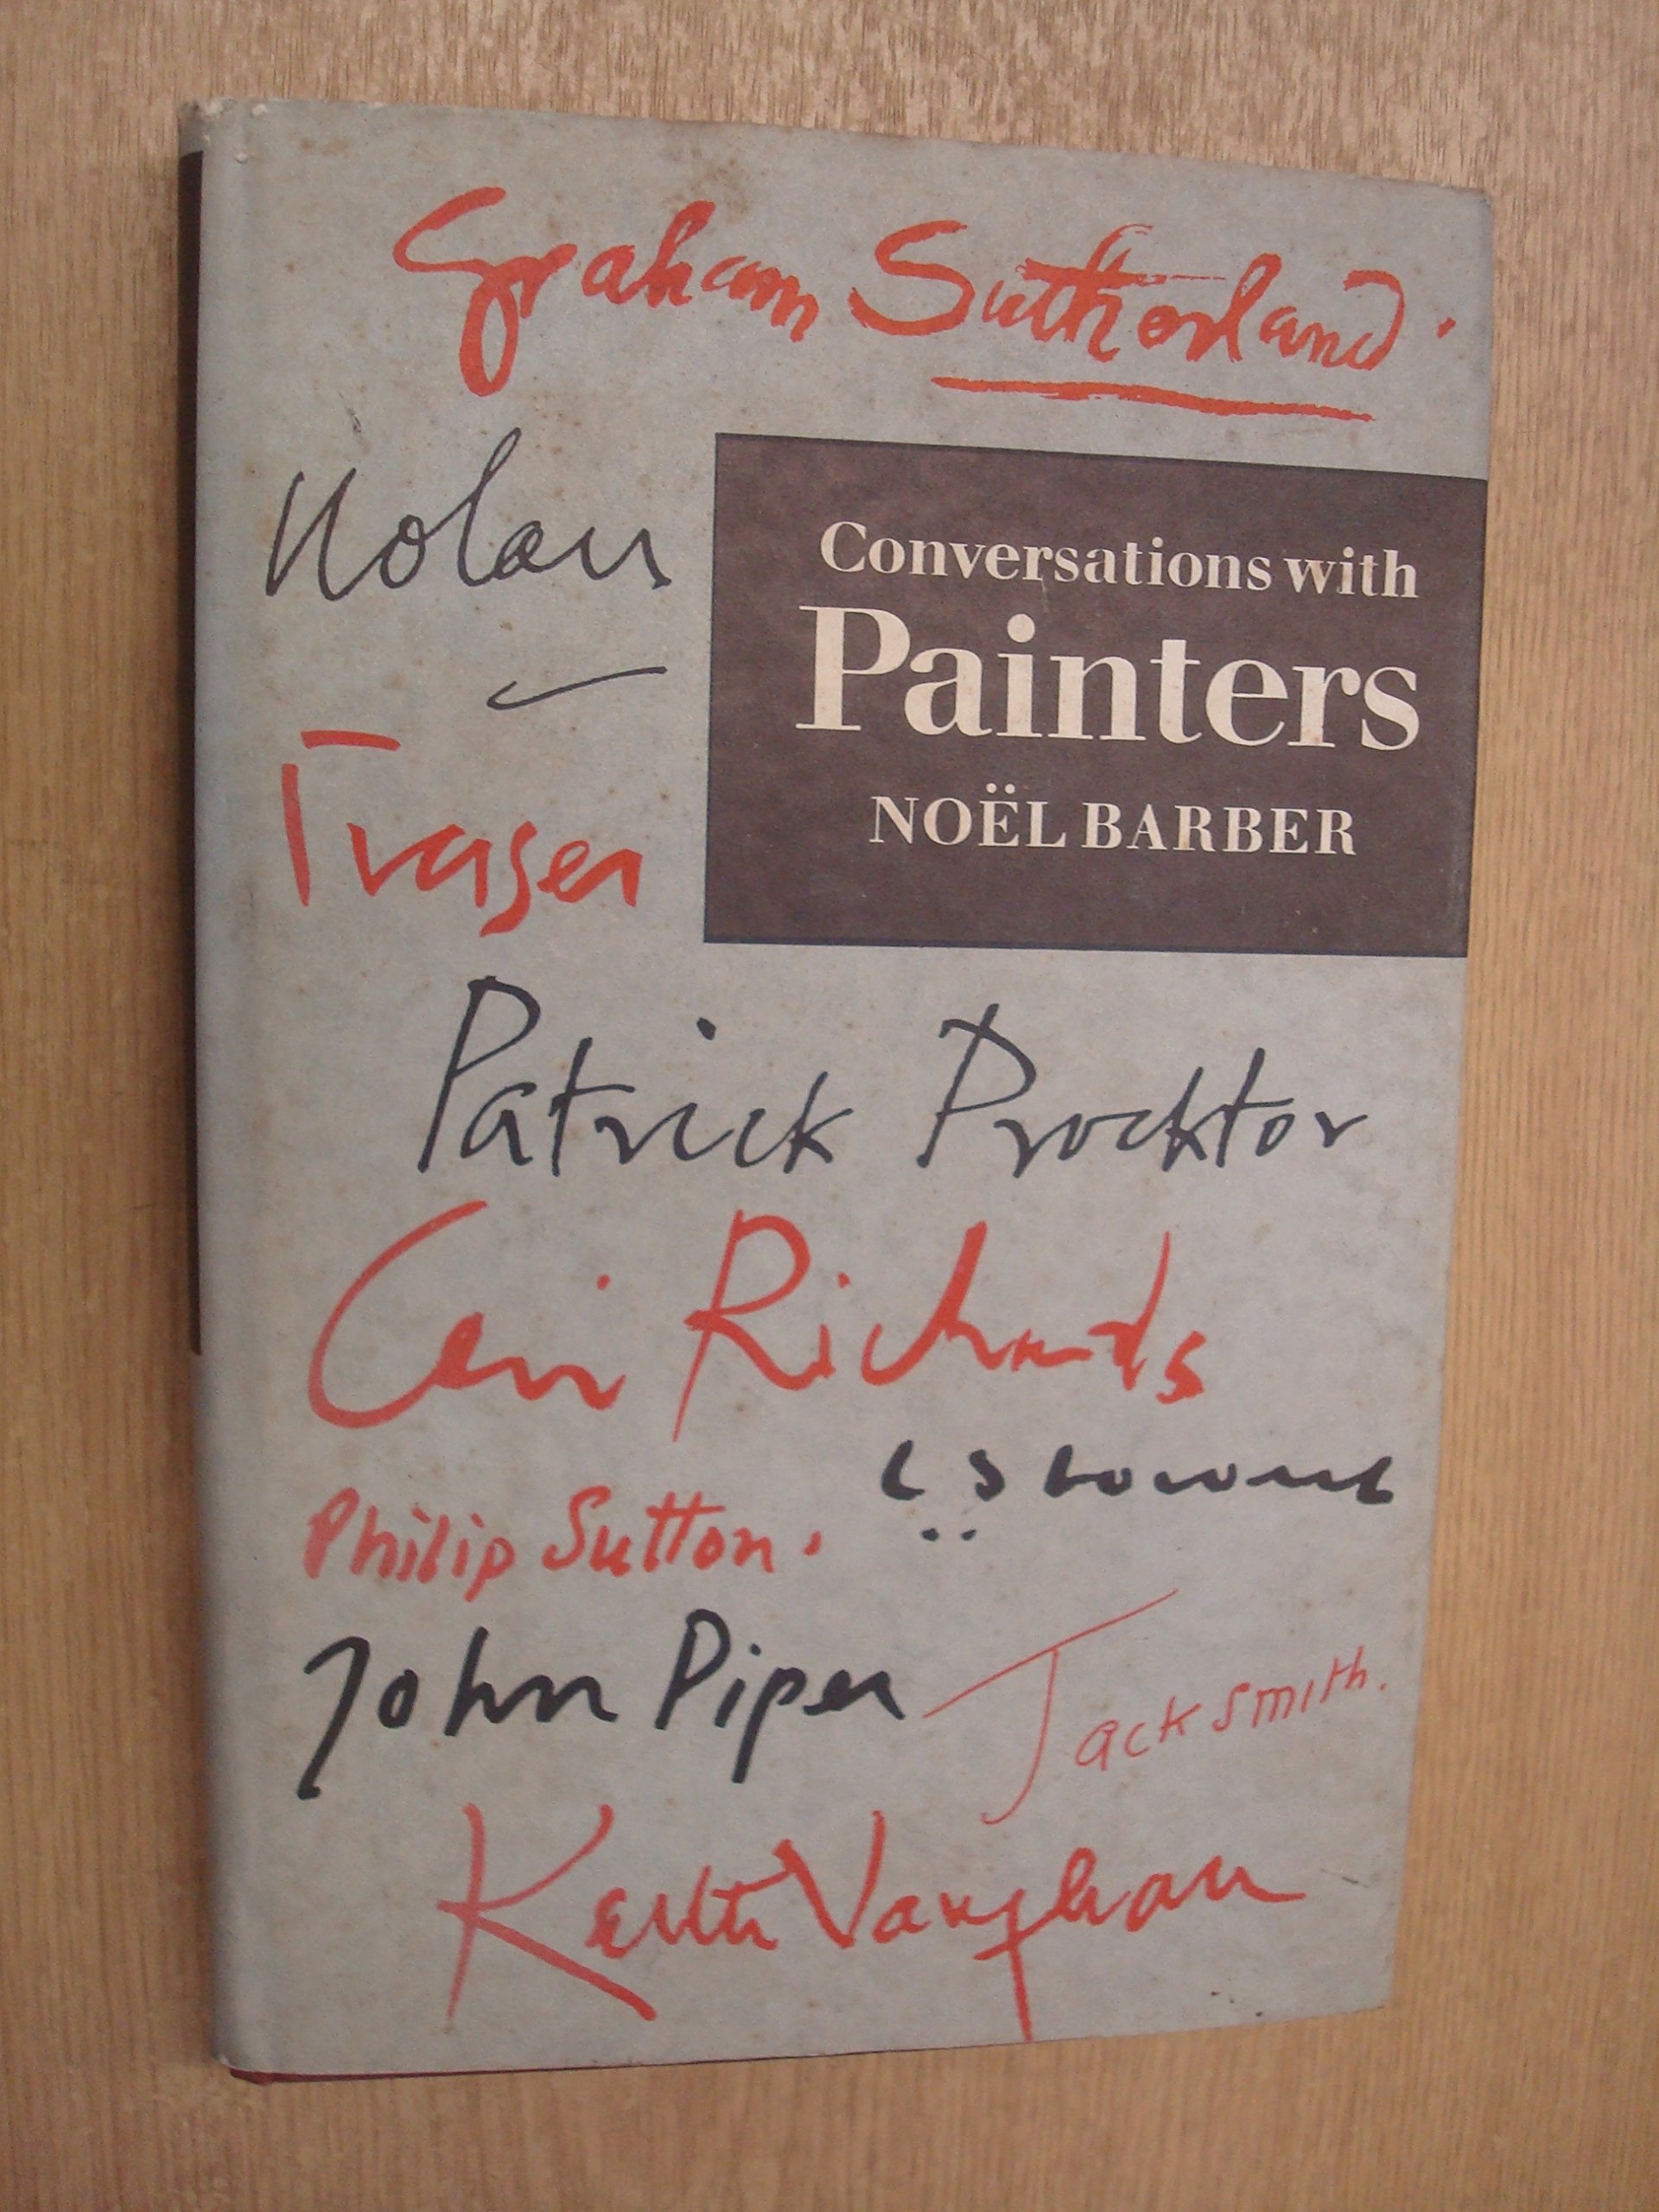 Graham Sutherland.
Nolan
Conversations with
Painters
NOËL BARBER
Fraser
Patrick Procktor
Ceri Richards
L S LOWRY
Philip Sutton.
John Piper
Jack Smith.
Keith Vaughan